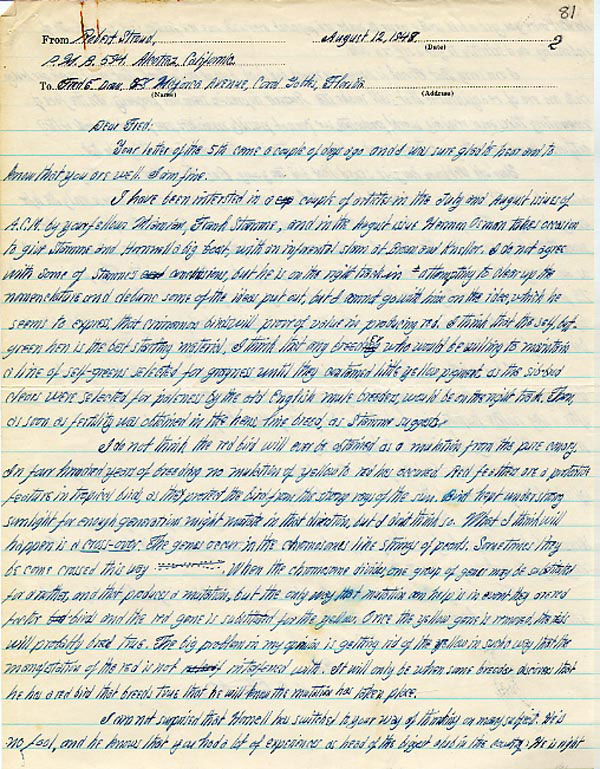 81
From Robert Stroud, August 12, 1948
(Date)
2
P.M.B. 594. Alcatraz, California.
To Fred E. Daw, Majorca Avenue, Coral Gables, Florida
(Name) (Address)
Dear Fred:
Your letter of the 5th came a couple of days ago and I was sure glad to hear and to
know that you are well. I am fine.
I have been interested in a couple of articles in the July and August issues of
A.C.M. by your fellow Miamian, Frank Stamme, and in the August issue Herman Osman takes occasion
to give Stamme and Horrnell a big boost, with an inferential slam at Dean and Kneller. I do not agree
with some of Stamm's conclusions, but he is on the right track in attempting to clear up the
nomenclature and debunk some of the ideas put out, but I cannot go with him on the idea, which he
seems to express, that cinnamon birds will prove of value in producing red. I think that the self,
green hen is the best starting material. I think that any breeder who would be willing to maintain
a line of self-greens selected for grayness until they contained little yellow pigment as the six-sid
clears were selected for paleness by the old English mule breeders, would be on the right track. Then,
as soon as fertility was obtained in the hens, line breed, as Stamme suggests.
I do not think the red bird will ever be obtained as a mutation from the pure canary.
In four hundred years of breeding no mutation of yellow to red has occurred. Red feathers are a protective
feature in tropical birds, as they protect the bird from the strong rays of the sun. Birds kept under strong
sunlight for enough generations might mutate in that direction, but I don't think so. What I think will
happen is a cross-over. The genes occur in the chromosomes like strings of pearls. Sometimes they
become crossed this way. When the chromosome divides, one group of genes may be substituted
for another, and that produces a mutation, but the only way that mutation can help is in event they are red
factor birds and the red gene is substituted for the yellow. Once the yellow gene is removed, the
will probably breed true. The big problem in my opinion is getting rid of the yellow in such way that the
manifestation of the red is not interfered with. It will only be when some breeder discovers that
he has a red bird that breeds true that he will know the mutation has taken place.
I am not surprised that Horrnell has switched to your way of thinking on many subject. He is
no fool, and he knows that you had a lot of experiences as head of the biggest club in the country. He is right